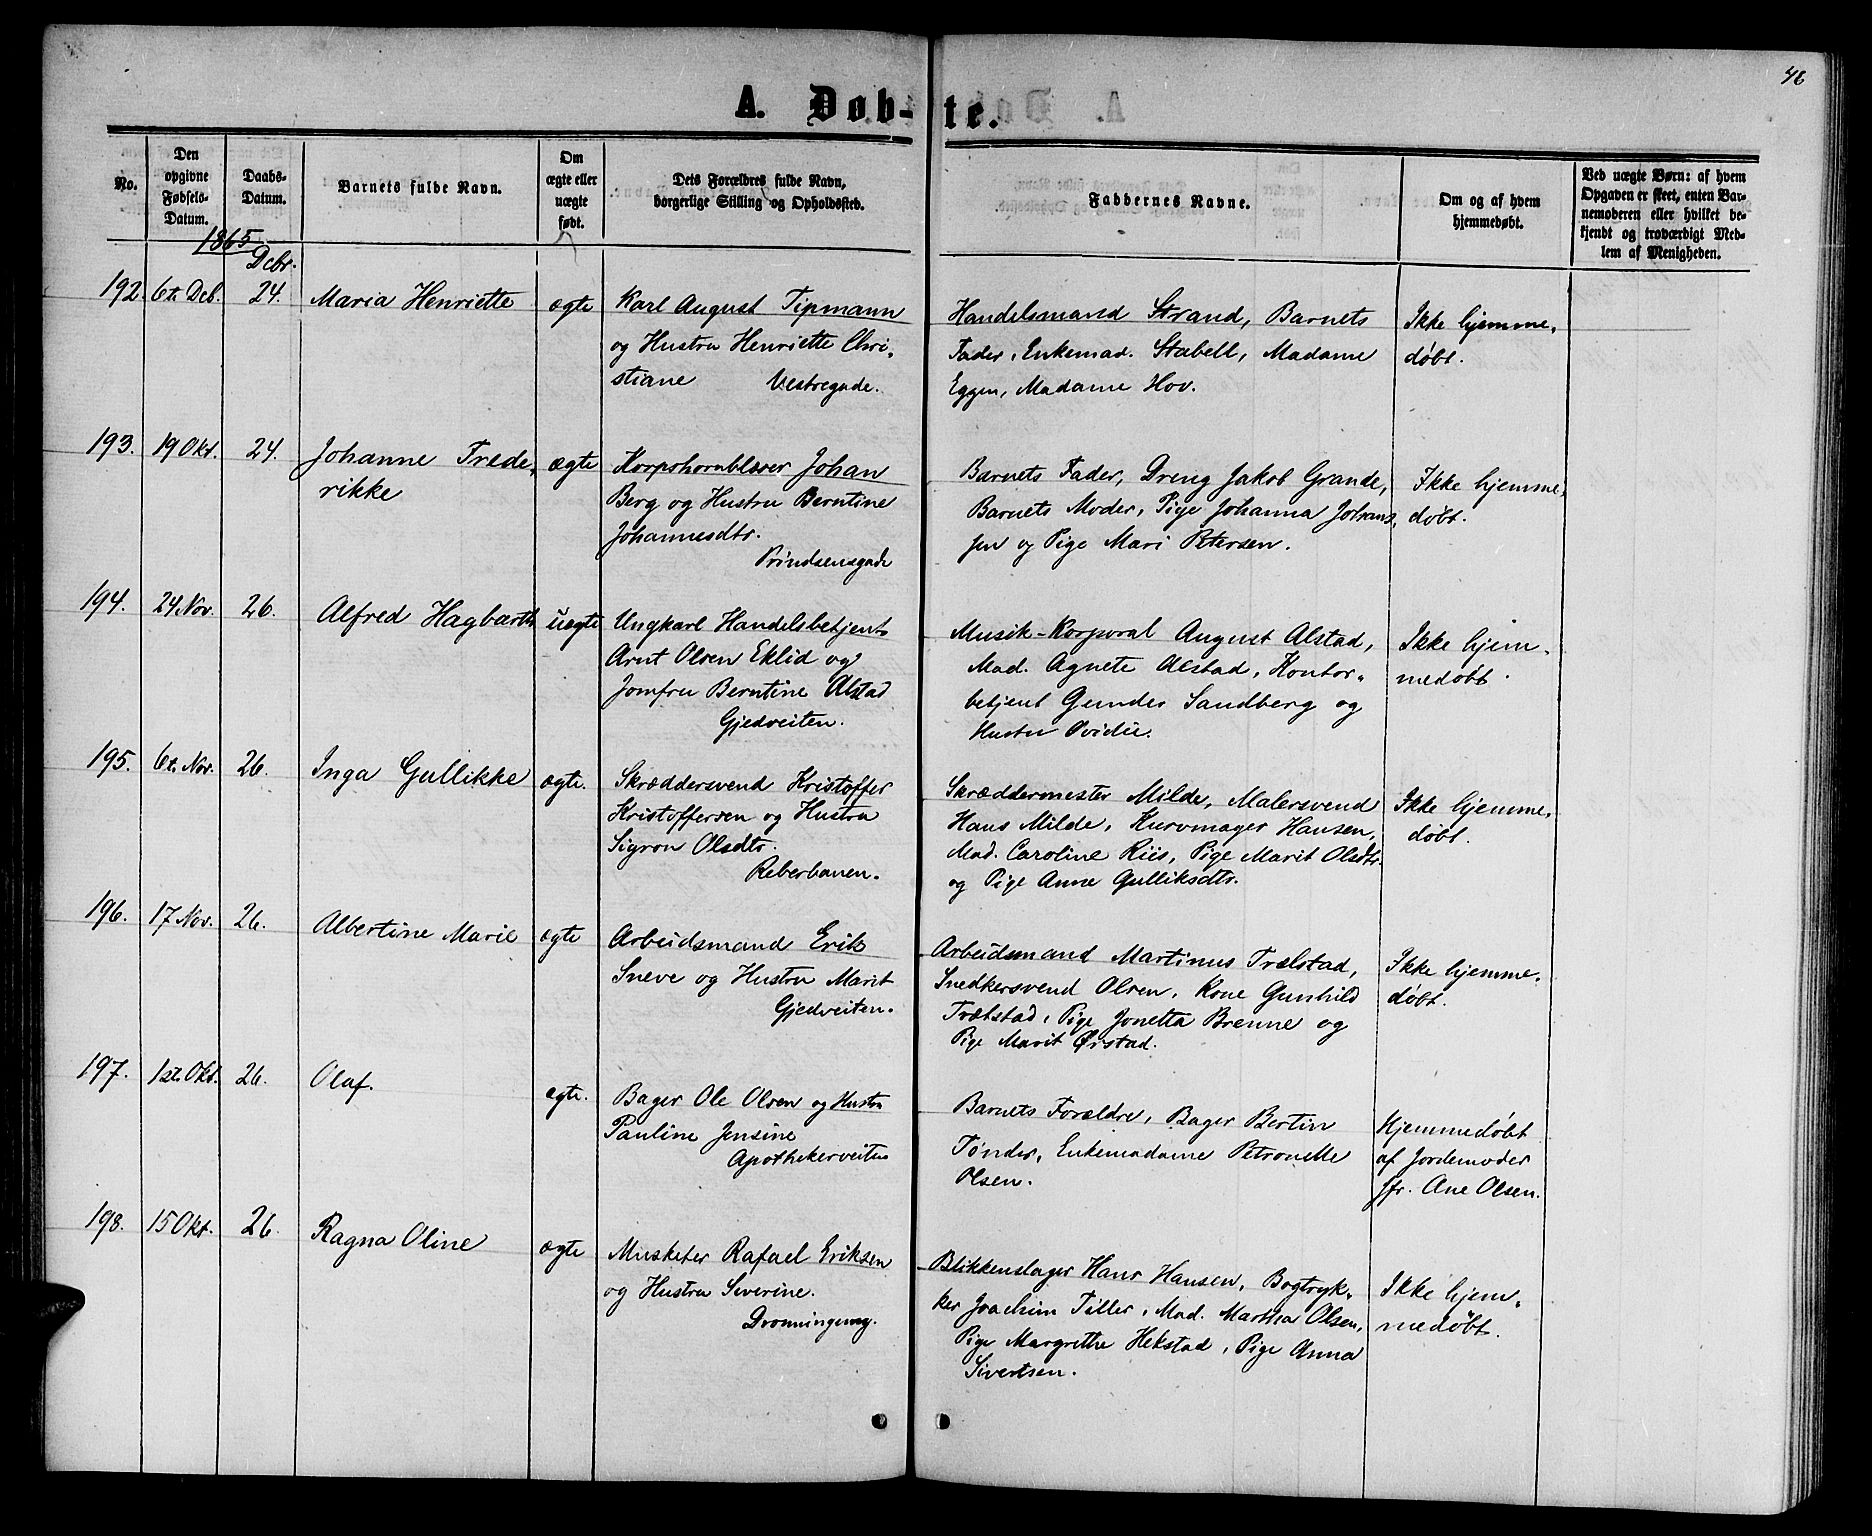 46
A. Døb-te.
No.
Den
opgivne
Fødsels-
Datum.
Daabs-
Datum.
Barnets fulde Navn.
Om
ægte eller
uægte
født.
Dets Forældres fulde Navn,
borgerlige Stilling og Opholdssted.
Faddernes Navne.
Om og af hvem
hjemmedøbt.
Ved uægte Børn: af hvem
Opgaven er skeet, enten Bar-
nemoderen eller hvilket be-
kjendt og troværdigt Med-
lem af Menigheden.
1865
Debr.
192. 6t. Deb. 24. Maria Henriette ægte
Karl August Tipmann
og Hustru Henriette Chri-
stiane Vestregade.
Handelsmand Strand, Barnets
Fader, Enkemad. Stabell, Madame
Eggen, Madame Hov.
Ikke hjemme-
døbt.
193. 19 Okt. 24. Johanne Frede-
rikke
ægte
Korpshornblæser Johan
Berg og Hustru Berntine
Johannesdtr.
Prindsensgade
Barnets Fader, Dreng Jakob Grande,
Barnets Moder, Pige Johanna Johans-
sen og Pige Mari Petersen.
Ikke hjemme-
døbt.
194. 24 Nov. 26. Alfred Hagbarth uægte
Ungkarl Handelsbetjent
Arnt Olsen Eklid og
Jomfru Berntine Alstad
Gjedveiten.
Musik-Korporal August Alstad,
Mad. Agnete Alstad, Kontor-
betjent Gunder Sandberg og
Hustru Ovidie.
Ikke hjem-
medøbt.
195. 6t. Nov. 26. Inga Gullikke ægte.
Skræddersvend Kristoffer
Kristoffersen og Hustru
Sigron Olsdtr.
Reberbanen.
Skræddermester Milde, Malersvend
Hans Milde, Kurvmager Hansen,
Mad. Caroline Riis, Pige Marit Olsdtr.
og Pige Anne Gulliksdtr.
Ikke hjemme-
døbt.
196. 17 Nov. 26. Albertine Marie ægte
Arbeidsmand Erik
Sneve og Hustru Marit
Gjedveiten.
Arbeidsmand Martinus Trælstad,
Snedkersvend Olsen, Kone Gunhild
Trætstad, Pige Jonetta Brenne og
Pige Marit Ørstad.
Ikke hjemme-
døbt.
197. 1st. Okt. 26. Olaf. ægte.
Bager Ole Olsen og Hustru
Pauline Jensine
Apothekerveiten
Barnets Forældre, Bager Bertin
Tønder, Enkemadame Petronelle
Olsen.
Hjemmedøbt
af Jordemoder
Jfr. Ane Olsen.
198. 15 Okt. 26. Ragna Oline ægte
Musketer Rafael Eriksen
og Hustru Severine.
Dronningensg.
Blikkenslager Hans Hansen, Bogtryk-
ker Joachim Tiller, Mad. Martha Olsen,
Pige Margrethe Hekstad, Pige Anna
Sivertsen.
Ikke hjem-
medøbt.